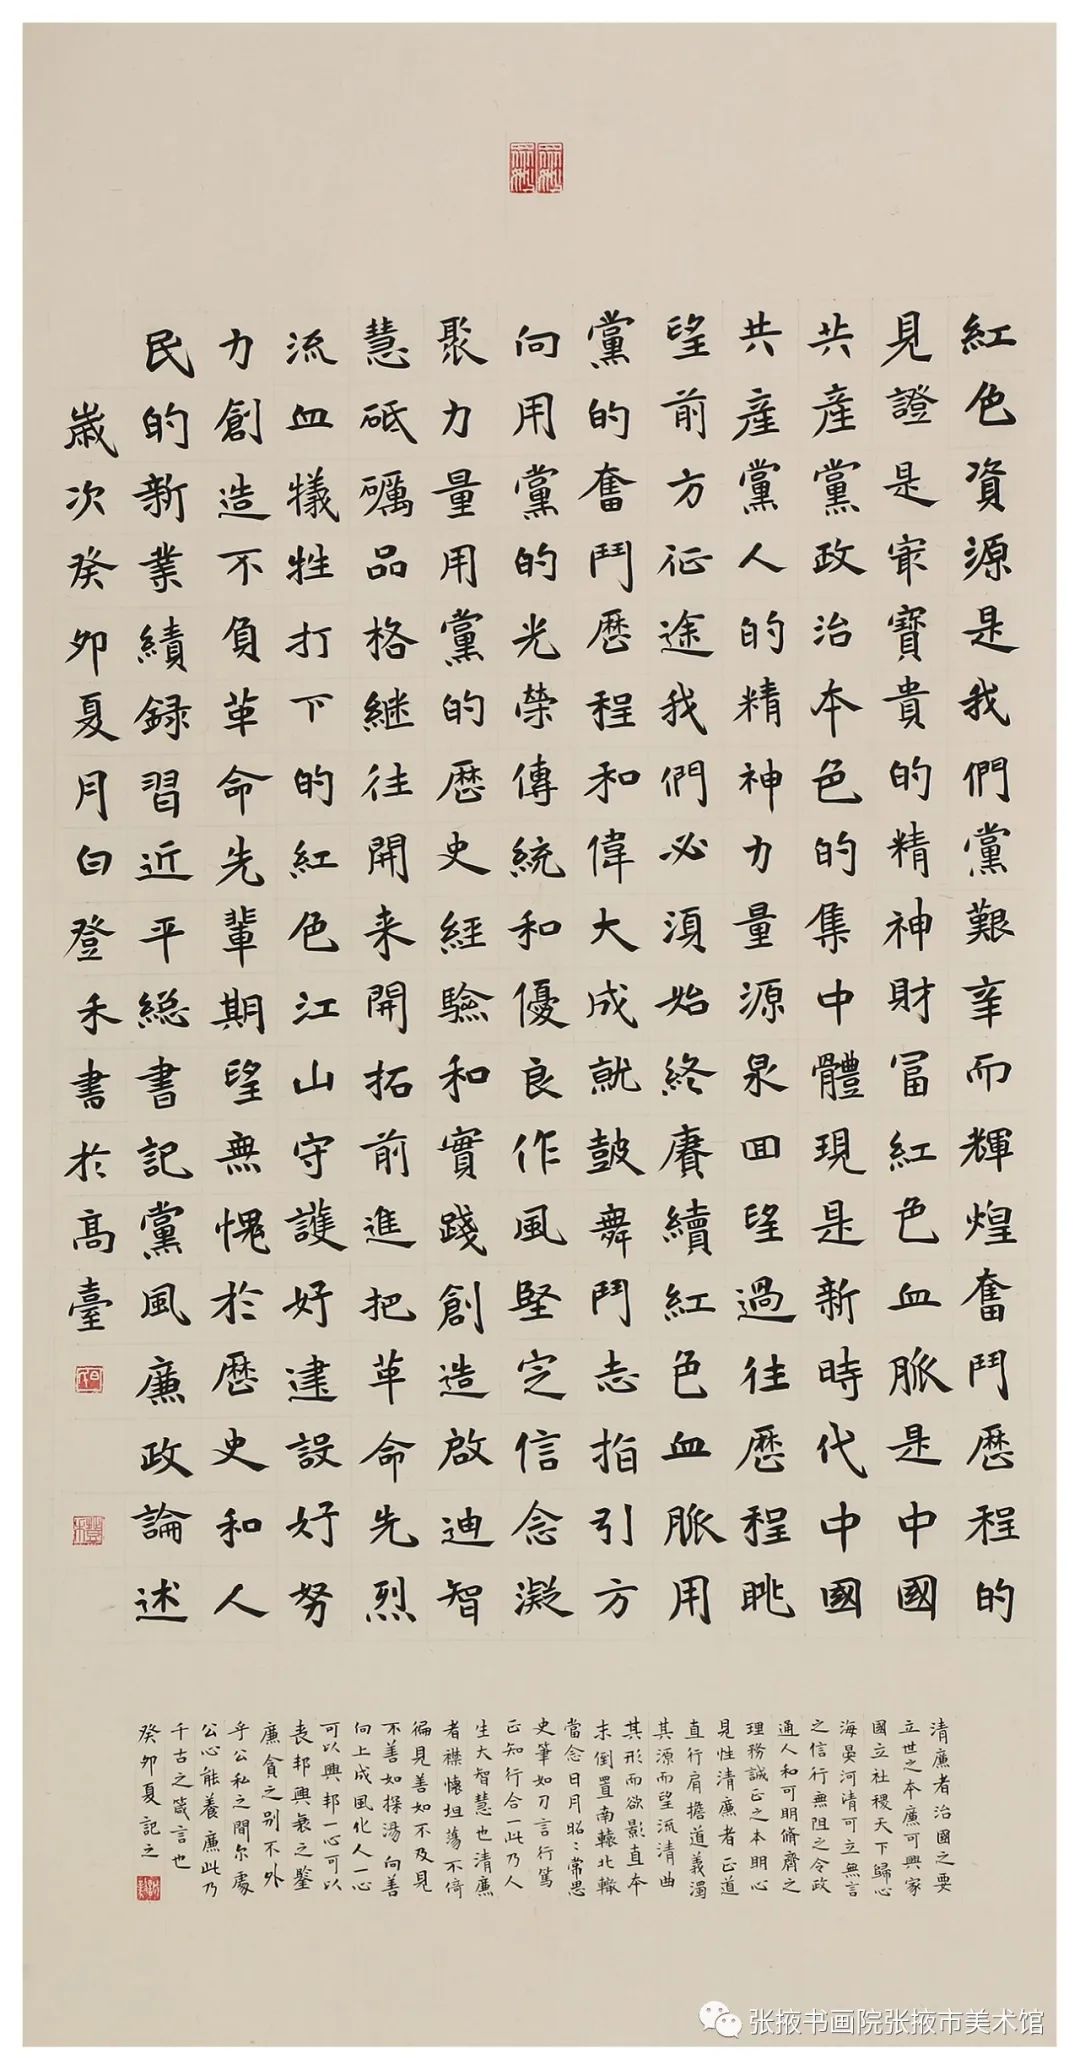 紅色資源是我們黨艱辛而輝煌奮鬥歷程的
見證是最寶貴的精神財富紅色血脈是中國
共產黨政治本色的集中體現是新時代中國
共產黨人的精神力量源泉回望過往歷程眺
望前方征途我們必須始終賡續紅色血脈用
黨的奮鬥歷程和偉大成就鼓舞鬥志指引方
向用黨的光榮傳統和優良作風堅定信念凝
聚力量用黨的歷史經驗和實踐創造啟迪智
慧砥礪品格継往開来開拓前進把革命先烈
流血犧牲打下的紅色江山守護好建設好努
力創造不負革命先輩期望無愧於歷史和人
民的新業績録習近平總書記黨風廉政論述
歲次癸卯夏月白登禾書於高臺
清廉者治國之要
立世之本廉可興家
國立社稷天下歸心
海晏河清可立無言
之信行無阻之令政
通人和可明脩齊之
理務誠正之本明心
見性清廉者正道
直行肩擔道義濁
其源而望流清曲
其形而欲影直本
末倒置南轅北轍
當念日月昭〻常思
史筆如刀言行篤
正知行合一此乃人
生大智慧也清廉
者襟懷坦蕩不倚
偏見善如不及見
不善如探湯向善
向上成風化人一心
可以興邦一心可以
喪邦興衰之鑒
廉貪之别不外
乎公私之間尔處
公心能養廉此乃
千古之箴言也
癸卯夏記之
张掖书画院张掖市美术馆